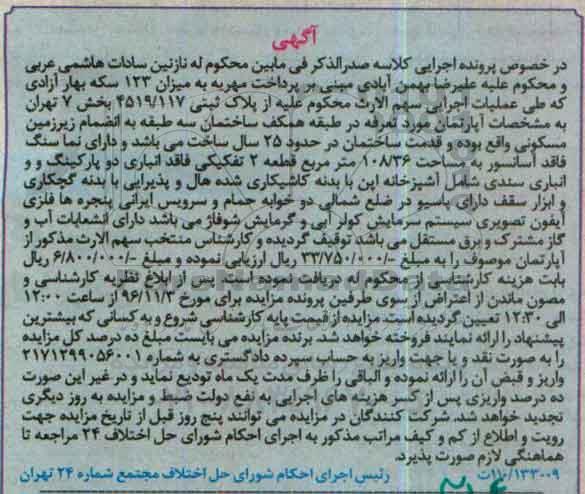 آگهی
در خصوص پرونده اجرایی کلاسه صدرالذکر فی مابین محکوم له نازنین سادات هاشمی عربی
و محکوم علیه علیرضا بهمن آبادی مبنی بر پرداخت مهریه به میزان ۱۲۳ سکه بهار آزادی
که طی عملیات اجرایی سهم الارث محکوم علیه از پلاک ثبتی ۴۵۱۹/۱۱۷ بخش ۷ تهران
به مشخصات آپارتمان مورد تعرفه در طبقه همکف ساختمان سه طبقه به انضمام زیرزمین
مسکونی واقع بوده و قدمت ساختمان در حدود ۲۵ سال ساخت می باشد و دارای نما سنگ
فاقد آسانسور به مساحت ۱۰۸/۳۶ متر مربع قطعه ۲ تفکیکی فاقد انباری دو پارکینگ و و
انباری سندی شامل آشپزخانه اپن با بدنه کاشیکاری شده هال و پذیرایی با بدنه گچکاری
و ابزار سقف دارای پاسیو در ضلع شمالی دو خوابه حمام و سرویس ایرانی پنجره ها فلزی
آیفون تصویری سیستم سرمایش کولر آبی و گرمایش شوفاژ می باشد دارای انشعابات آب و
گاز مشترک و برق مستقل می باشد توقیف گردیده و کارشناس منتخب سهم الارث مذکور از
آپارتمان موصوف را به مبلغ -/۳۳/۷۵۰/۰۰۰ ریال ارزیابی نموده و مبلغ -/۶/۸۰۰/۰۰۰ ریال
بابت هزینه کارشناسی از محکوم له دریافت نموده است. پس از ابلاغ نظریه کارشناسی و
مصون ماندن از اعتراض از سوی طرفین پرونده مزایده برای مورخ ۹۶/۱۱/۳ از ساعت ۱۲:۰۰
الی ۱۲:۳۰ تعیین گردیده است. مزایده از قیمت پایه کارشناسی شروع و به کسانی که بیشترین
پیشنهاد را ارائه نمایند فروخته خواهد شد. برنده مزایده می بایست مبلغ ده درصد کل مزایده
را به صورت نقد و یا جهت واریز به حساب سپرده دادگستری به شماره ۲۱۷۱۲۹۹۰۵۶۰۰۱
واریز و قبض آن را ارائه نموده و الباقی را ظرف مدت یک ماه تودیع نماید و در غیر این صورت
ده درصد واریزی پس از کسر هزینه های اجرایی به نفع دولت ضبط و مزایده به روز دیگری
تجدید خواهد شد. شرکت کنندگان در مزایده می توانند پنج روز قبل از تاریخ مزایده جهت
رویت و اطلاع از کم و کیف مراتب مذکور به اجرای احکام شورای حل اختلاف ۲۴ مراجعه تا
هماهنگی لازم صورت پذیرد.
۱۱۰/۱۳۳۰۰۹ت رئیس اجرای احکام شورای حل اختلاف مجتمع شماره ۲۴ تهران